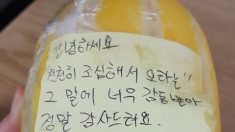 안녕하세요
천천히 조심해서 오라는"
그 말에 너무 감동받아
정말 감사드려요.